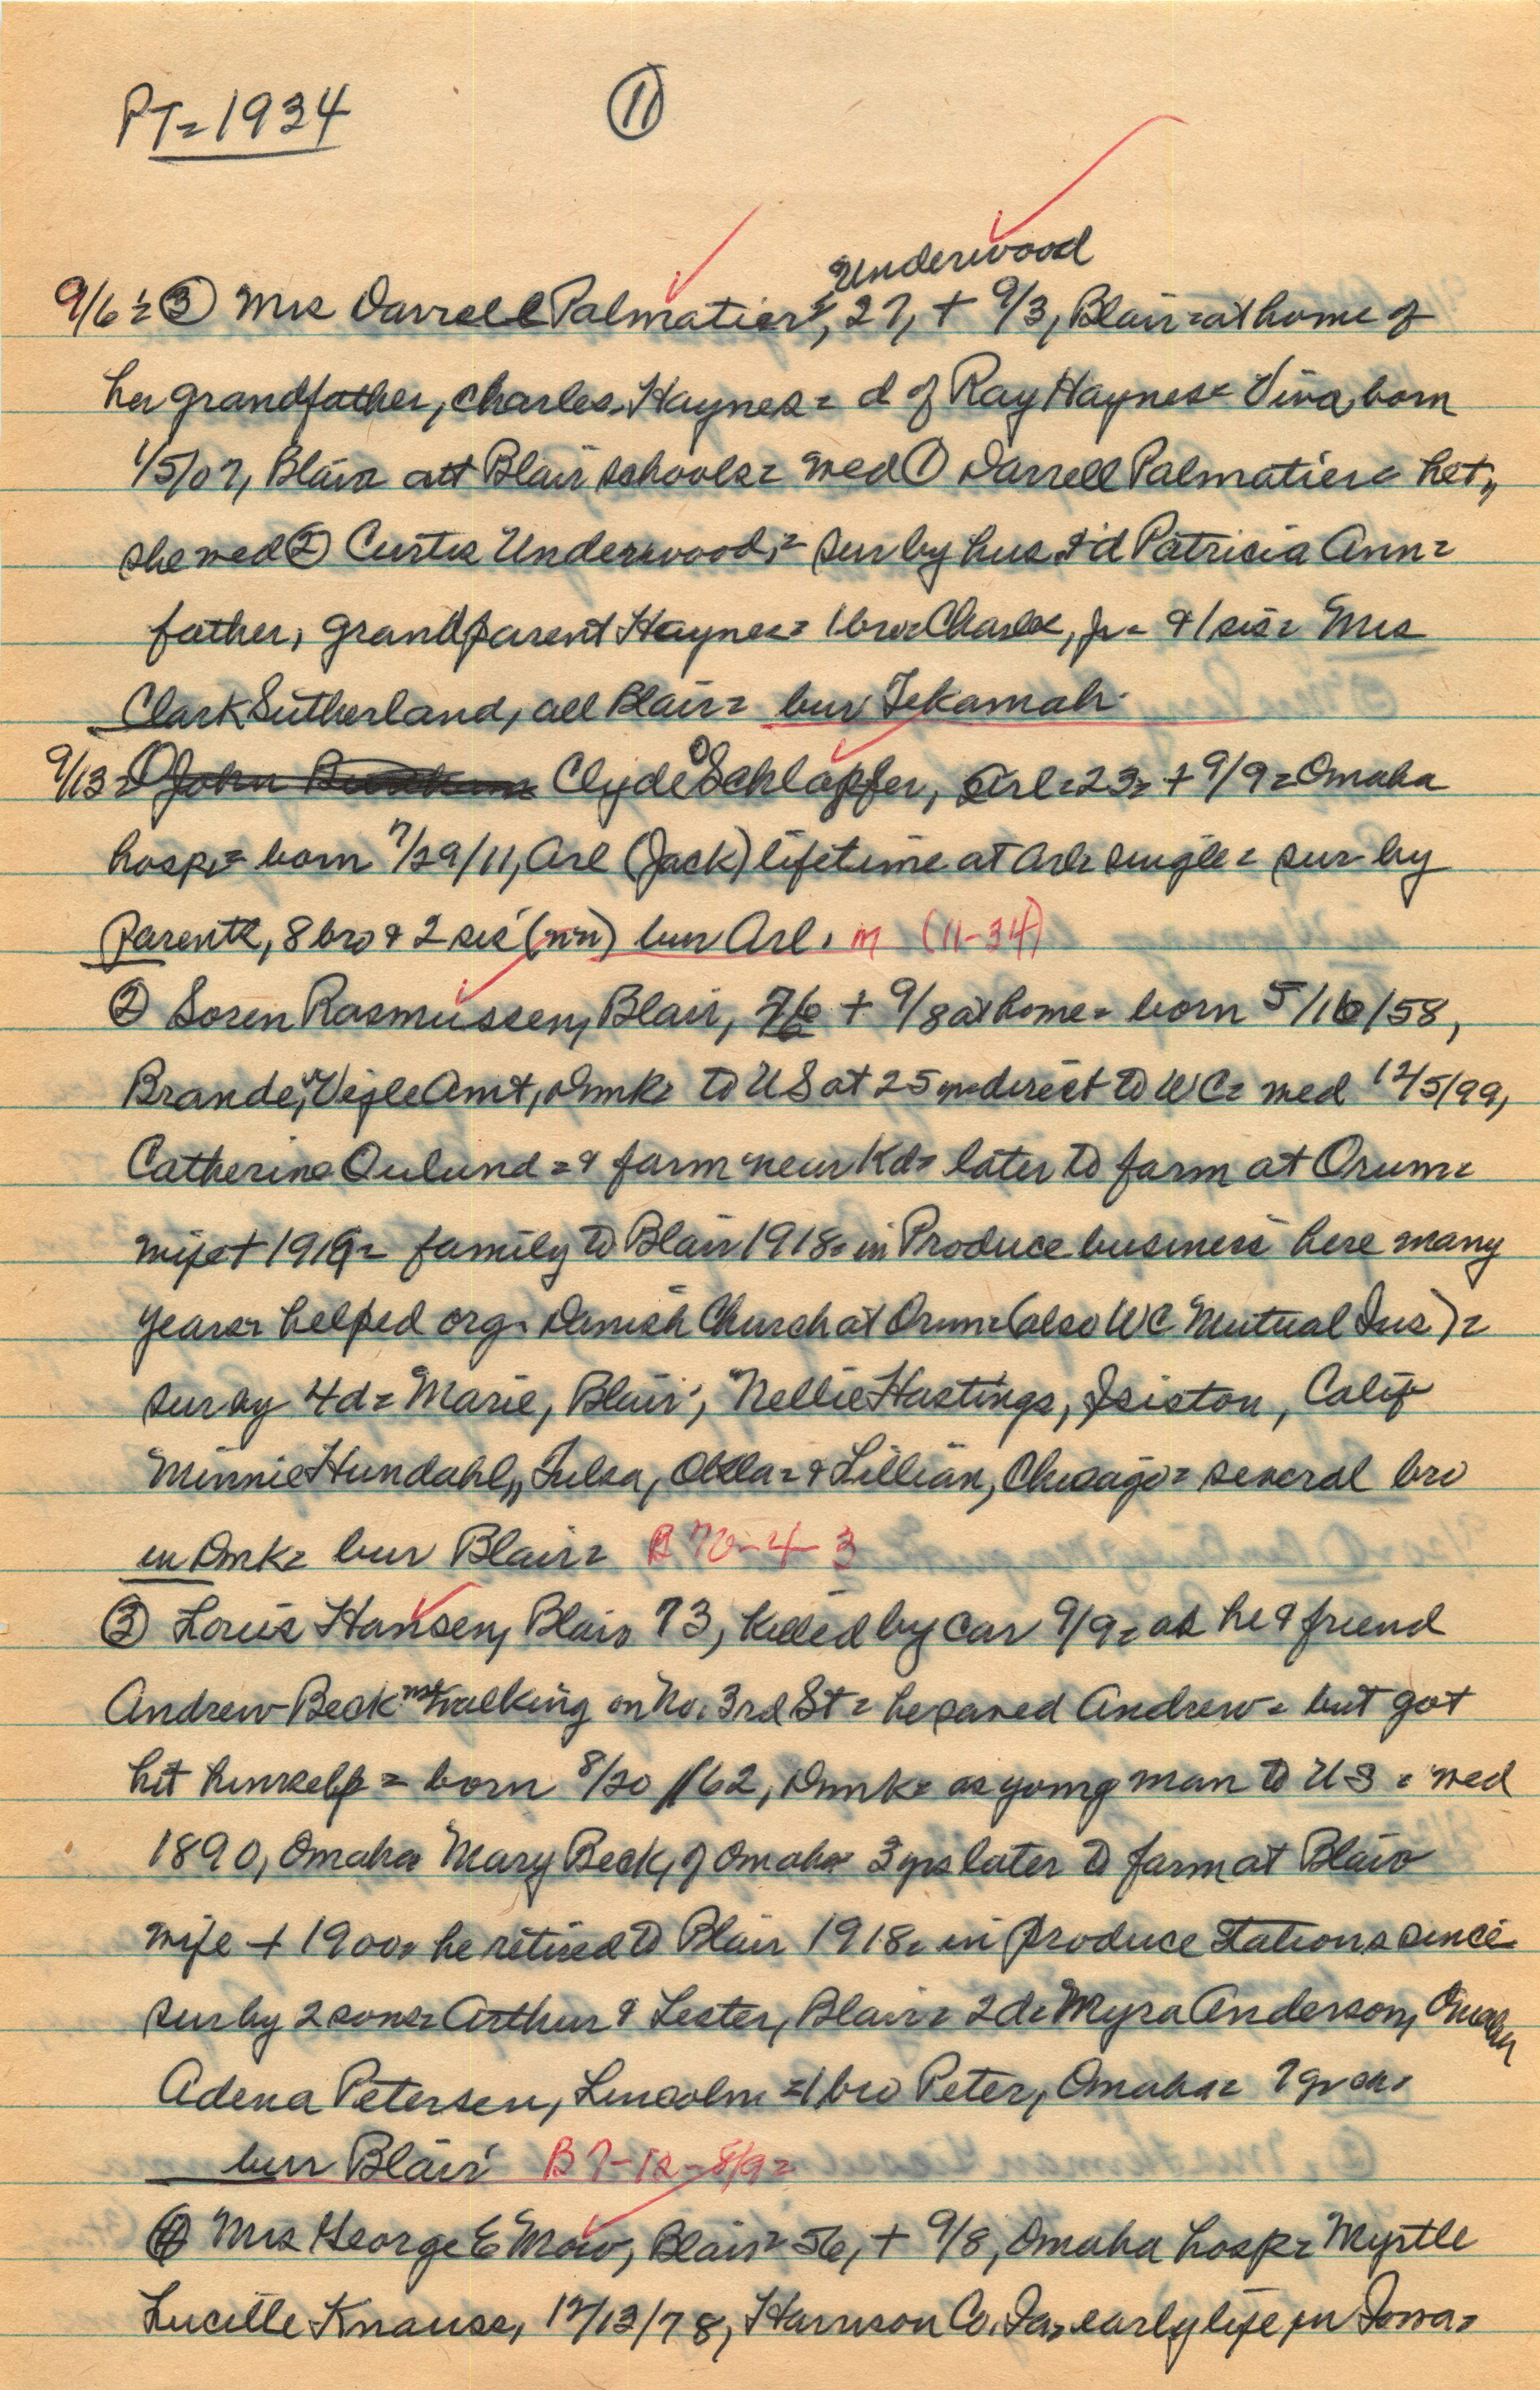 PT= 1934
11
Underwood
9/6= 3 Mrs Darrell Palmatier, 27, + 9/3, Blair= at home of
her grandfather, Charles Haynes= d of Ray Haynes= born
1/5/07, Blair att Blair schools= med 1 Darrell Palmatier=
she med 2 Curtis Underwood,= sur by hus & d Patricia Ann=
father, grandparent Haynes= 1 bro= Charles, Jr= & 1 sis= Mrs
Clark Sutherland, all Blair= bur Tekamah
9/13= 1 Clyde O Schlapfer, Arl= 23= + 9/9= Omaha
hosp= born 7/29/11, Arl (Jack) lifetime at Arl= single= sur by
parents, 8 bro & 2 sis (nn) bur Arl. m (11-34)
2 Soren Rasmussen, Blair, 76 + 9/8 at home= born 5/16/58,
Brande, Vejle Amt, Dnmk= to US at 25 direct to WC= med 12/5/99,
Catherine & farm near Kd= later to farm at Orum=
wife + 1919= family to Blair 1918= in Produce business here many
years= helped org. Danish Church at Orum= (also WC Mutual Ins)=
sur by 4 d= Marie, Blair, Nellie Hastings, Calif
Minnie Hundahl, Tulsa, Okla= & Lillian, Chicago= several bro
in Dmk= bur Blair= B 70-4-3
3 Louis Hansen, Blair 73, killed by car 9/9= as he & friend
Andrew Beck walking on No. 3rd St= he saved Andrew= but got
hit himself= born 8/20/62, Dnmk= as young man to US= med
1890, Omaha Mary Beck, of Omaha 3 yrs later to farm at Blair
wife + 1900= he retired to Blair 1918= in produce stations since
sur by 2 sons= Arthur & Lester, Blair= 2 d= Myra Anderson, Omaha
Adena Petersen, Lincoln= 1 bro Peter, Omaha= 7 gr ch=
bur Blair B 7-12-8/9=
4 Mrs George E Mow, Blair= 56, + 9/8, Omaha hosp= Myrtle
Lucille Knauss, 12/13/78, Harrison Co. Ia= early life in Iowa=